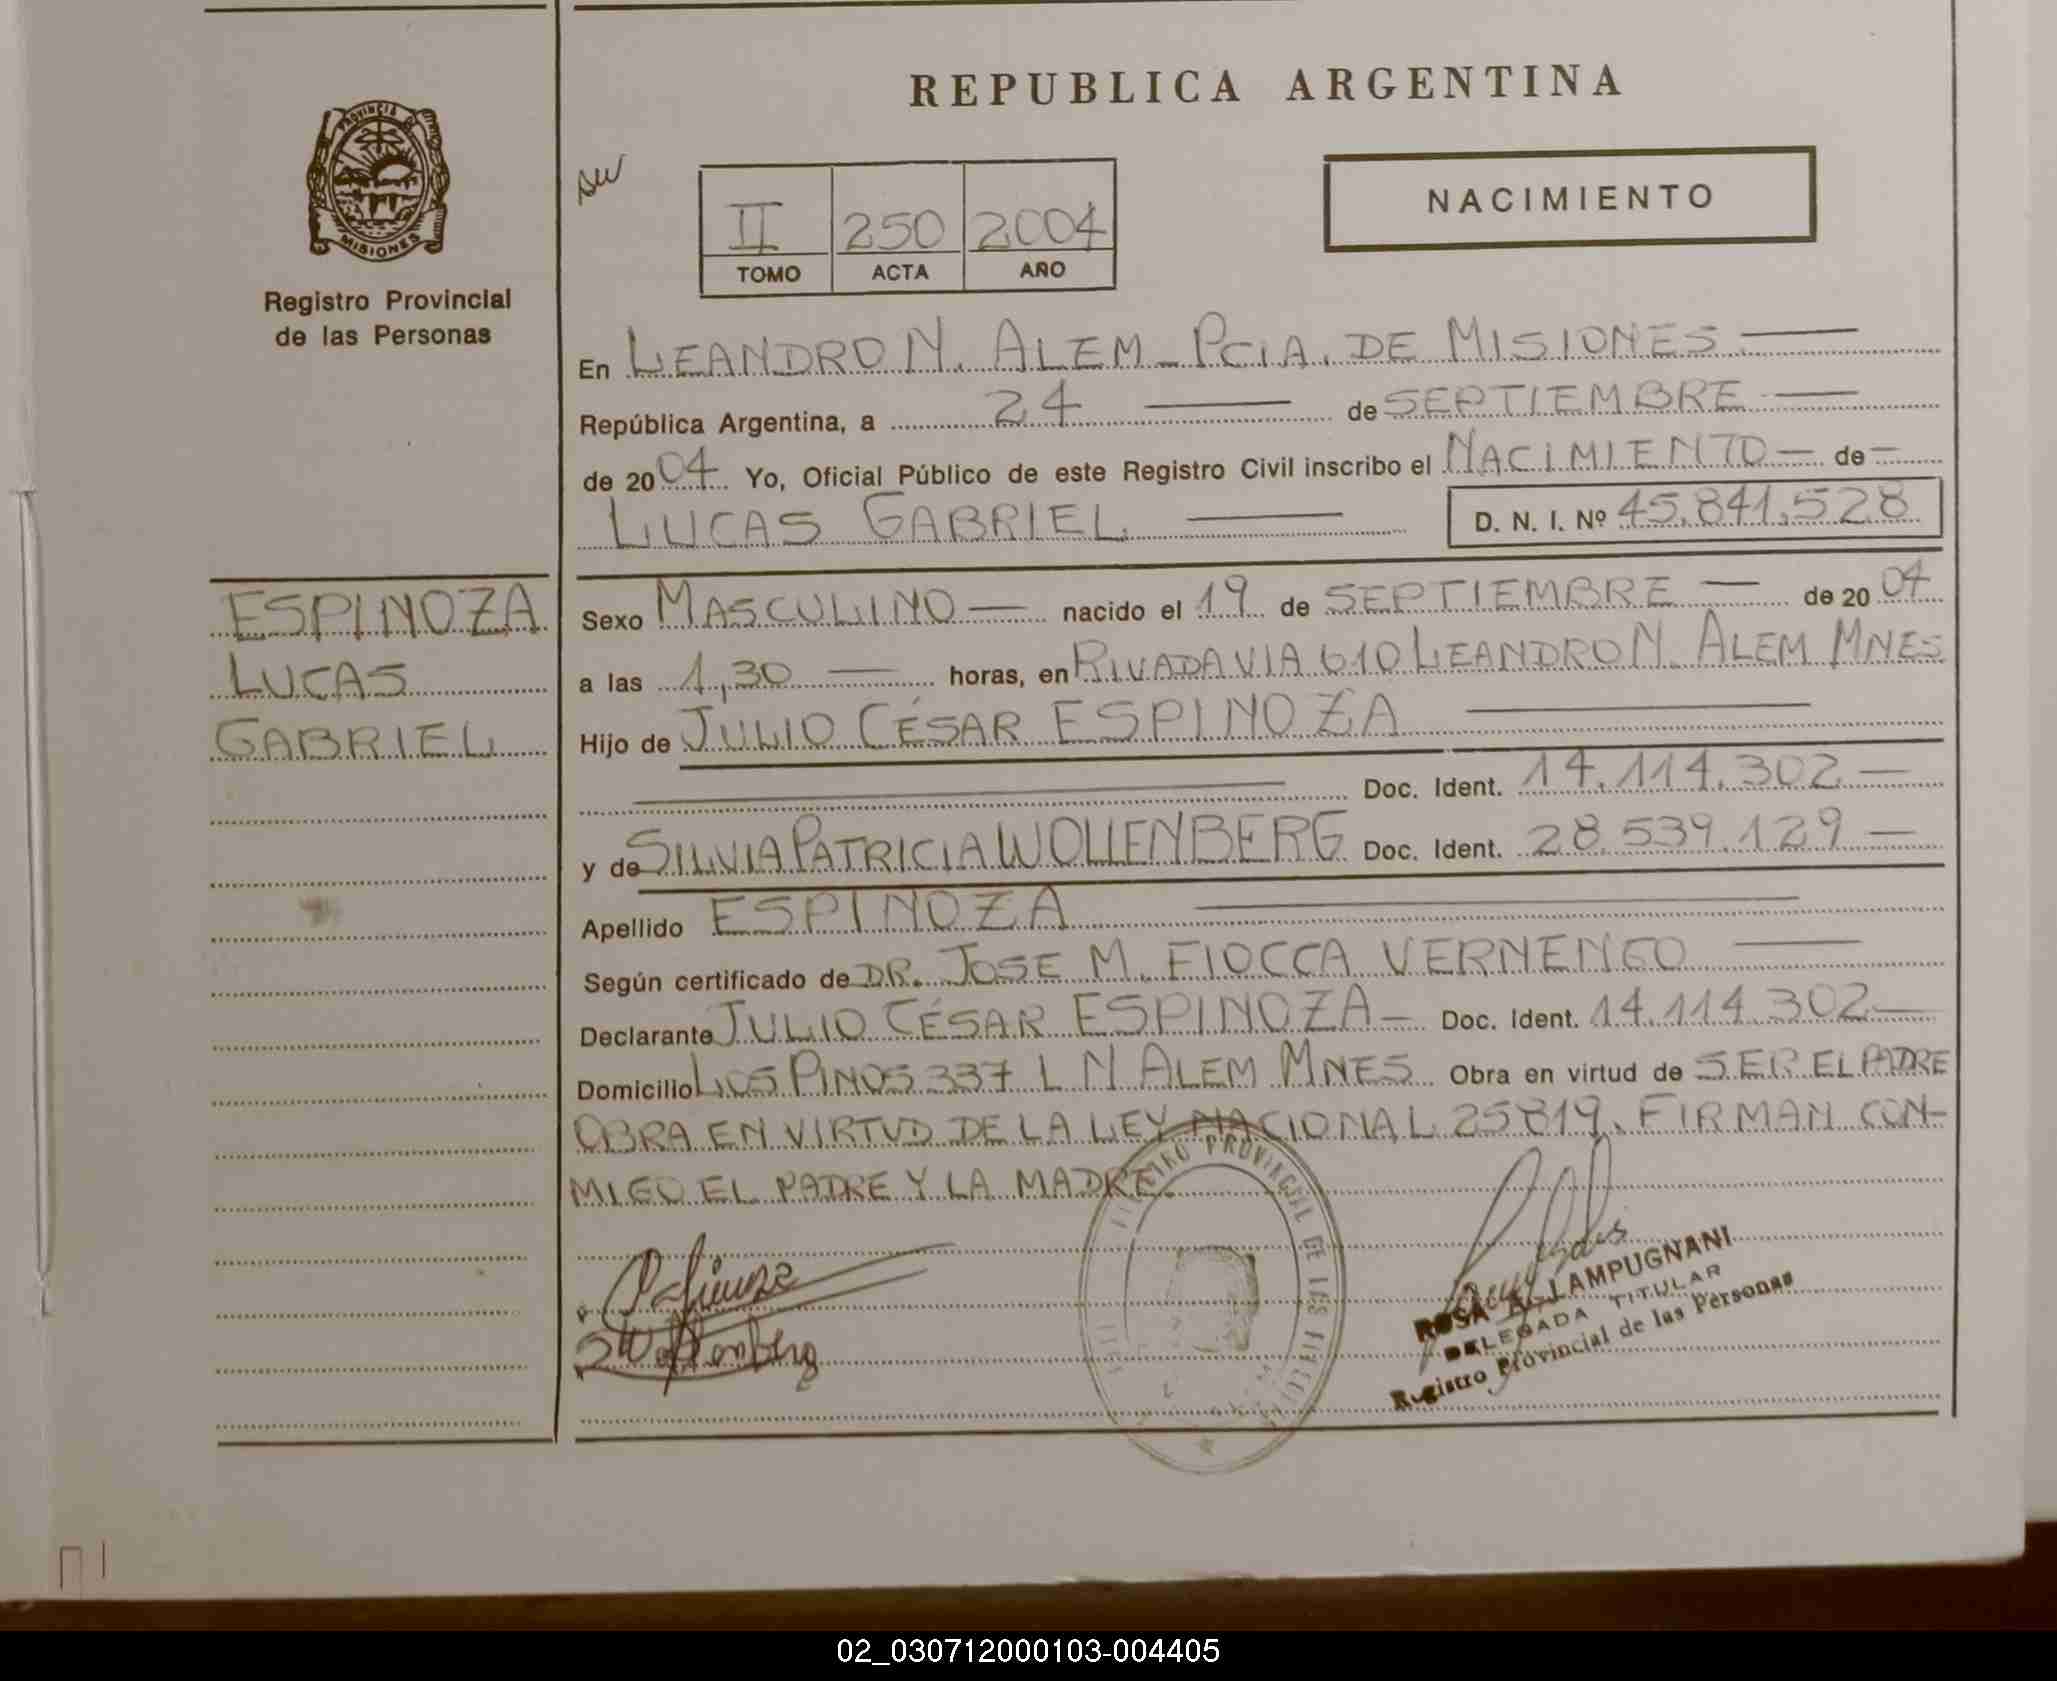 REPUBLICA ARGENTINA
PROVINCIA DE
MISIONES
Registro Provincial
de las Personas
II 250 2004
TOMO ACTA AÑO
NACIMIENTO
En LEANDRO N. ALEM - PCIA. DE MISIONES
República Argentina, a 24 de SEPTIEMBRE
de 2004 Yo, Oficial Público de este Registro Civil inscribo el NACIMIENTO de
LUCAS GABRIEL D. N. I. Nº 45.841.528
ESPINOZA
LUCAS
GABRIEL
Sexo MASCULINO nacido el 19 de SEPTIEMBRE de 2004
a las 1,30 horas, en RIVADAVIA 610 LEANDRO N. ALEM MNES
Hijo de JULIO CÉSAR ESPINOZA
Doc. Ident. 14.114.302
y de SILVIA PATRICIA WOLLENBERG Doc. Ident. 28.539.129
Apellido ESPINOZA
Según certificado de DR. JOSE M. FIOCCA VERNENGO
Declarante JULIO CÉSAR ESPINOZA Doc. Ident. 14.114.302
Domicilio LOS PINOS 337 L N ALEM MNES Obra en virtud de SER EL PADRE
OBRA EN VIRTUD DE LA LEY NACIONAL 25819. FIRMAN CON-
MIGO EL PADRE Y LA MADRE.
ROSA A. LAMPUGNANI
DELEGADA TITULAR
Registro Provincial de las Personas
02_030712000103-004405